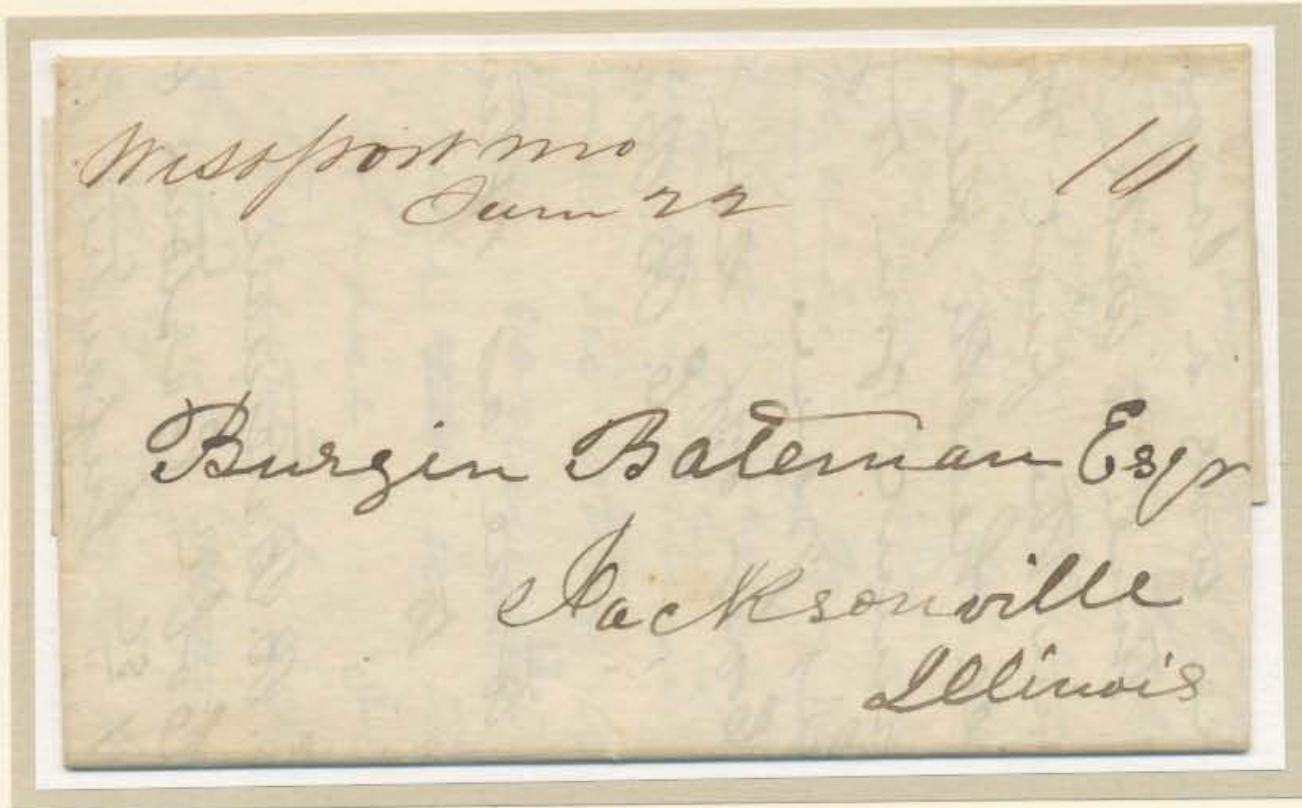 Westport Mo
June 22
10
Burgin Bateman Esqr
Jacksonville
Illinois